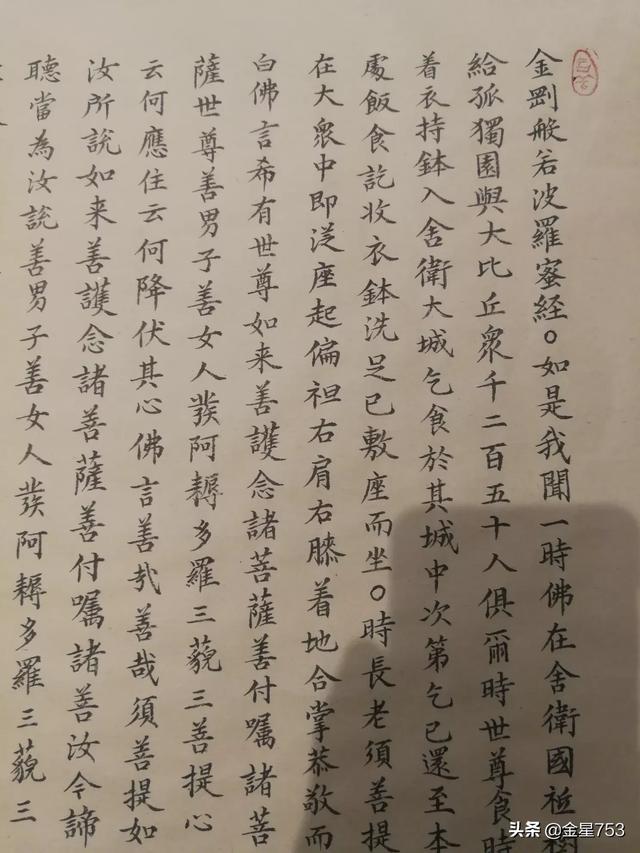 金剛般若波羅蜜経。如是我聞一時佛在舍衛國祗樹
給孤獨園與大比丘眾千二百五十人俱爾時世尊食時
着衣持鉢入舍衛大城乞食於其城中次第乞已還至本
處飯食訖收衣鉢洗足已敷座而坐。時長老須善提
在大眾中即從座起偏袒右肩右膝着地合掌恭敬而
白佛言希有世尊如来善護念諸菩薩善付囑諸菩
薩世尊善男子善女人發阿耨多羅三藐三善提心
云何應住云何降伏其心佛言善哉善哉須善提如
汝所說如来善護念諸善薩善付囑諸善汝今諦
聽當為汝說善男子善女人發阿耨多羅三藐三
头条 @金星753